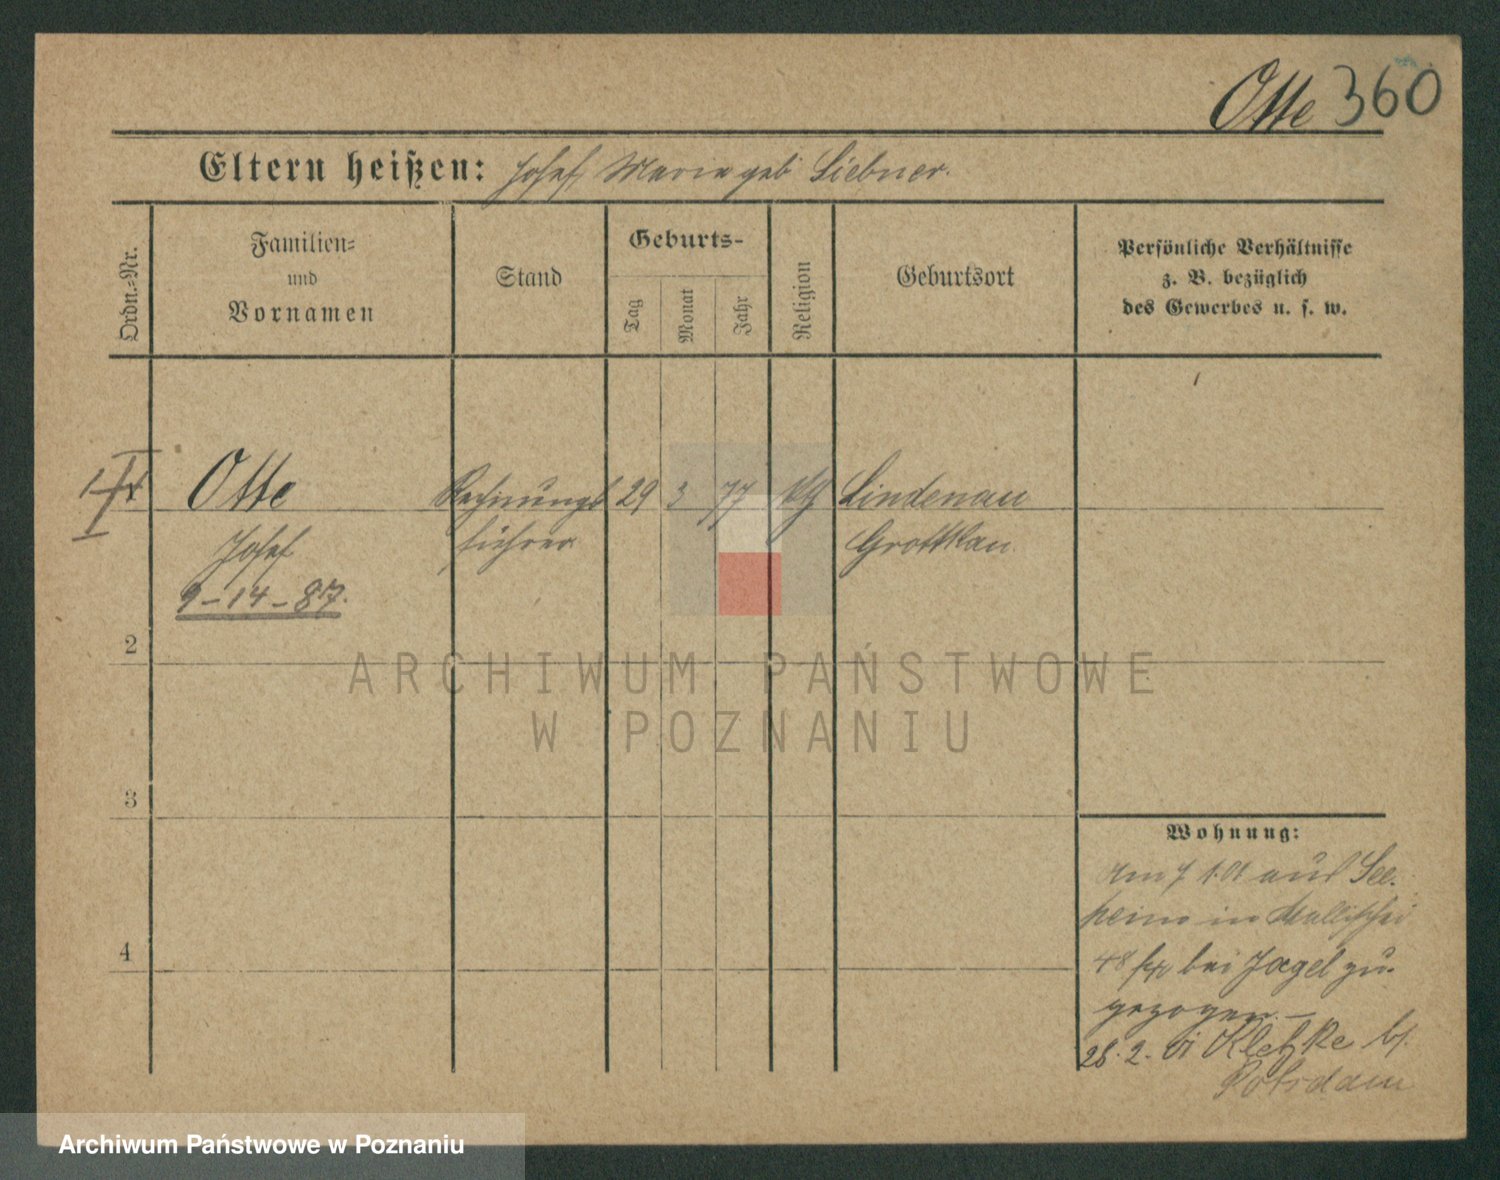 Otte 360
Eltern heißen: Josef Marie geb. Liebner.
Ordn.-Nr.
Familien-
und
Vornamen
Stand
Geburts-
Tag
Monat
Jahr
Religion
Geburtsort
Persönliche Verhältnisse
z. B. bezüglich
des Gewerbes u. s. w.
Otte Rechnungs 29 3 77 kth Lindenau
Josef führer Grottkau
9-14-87.
2
3
4
ARCHIWUM PAŃSTWOWE
W POZNANIU
Wohnung:
Am 7 1.01 aus See-
heim in
48 bei Jagel zu-
gezogen.-
28.2.01 Kletzke b/
Potsdam
Archiwum Państwowe w Poznaniu